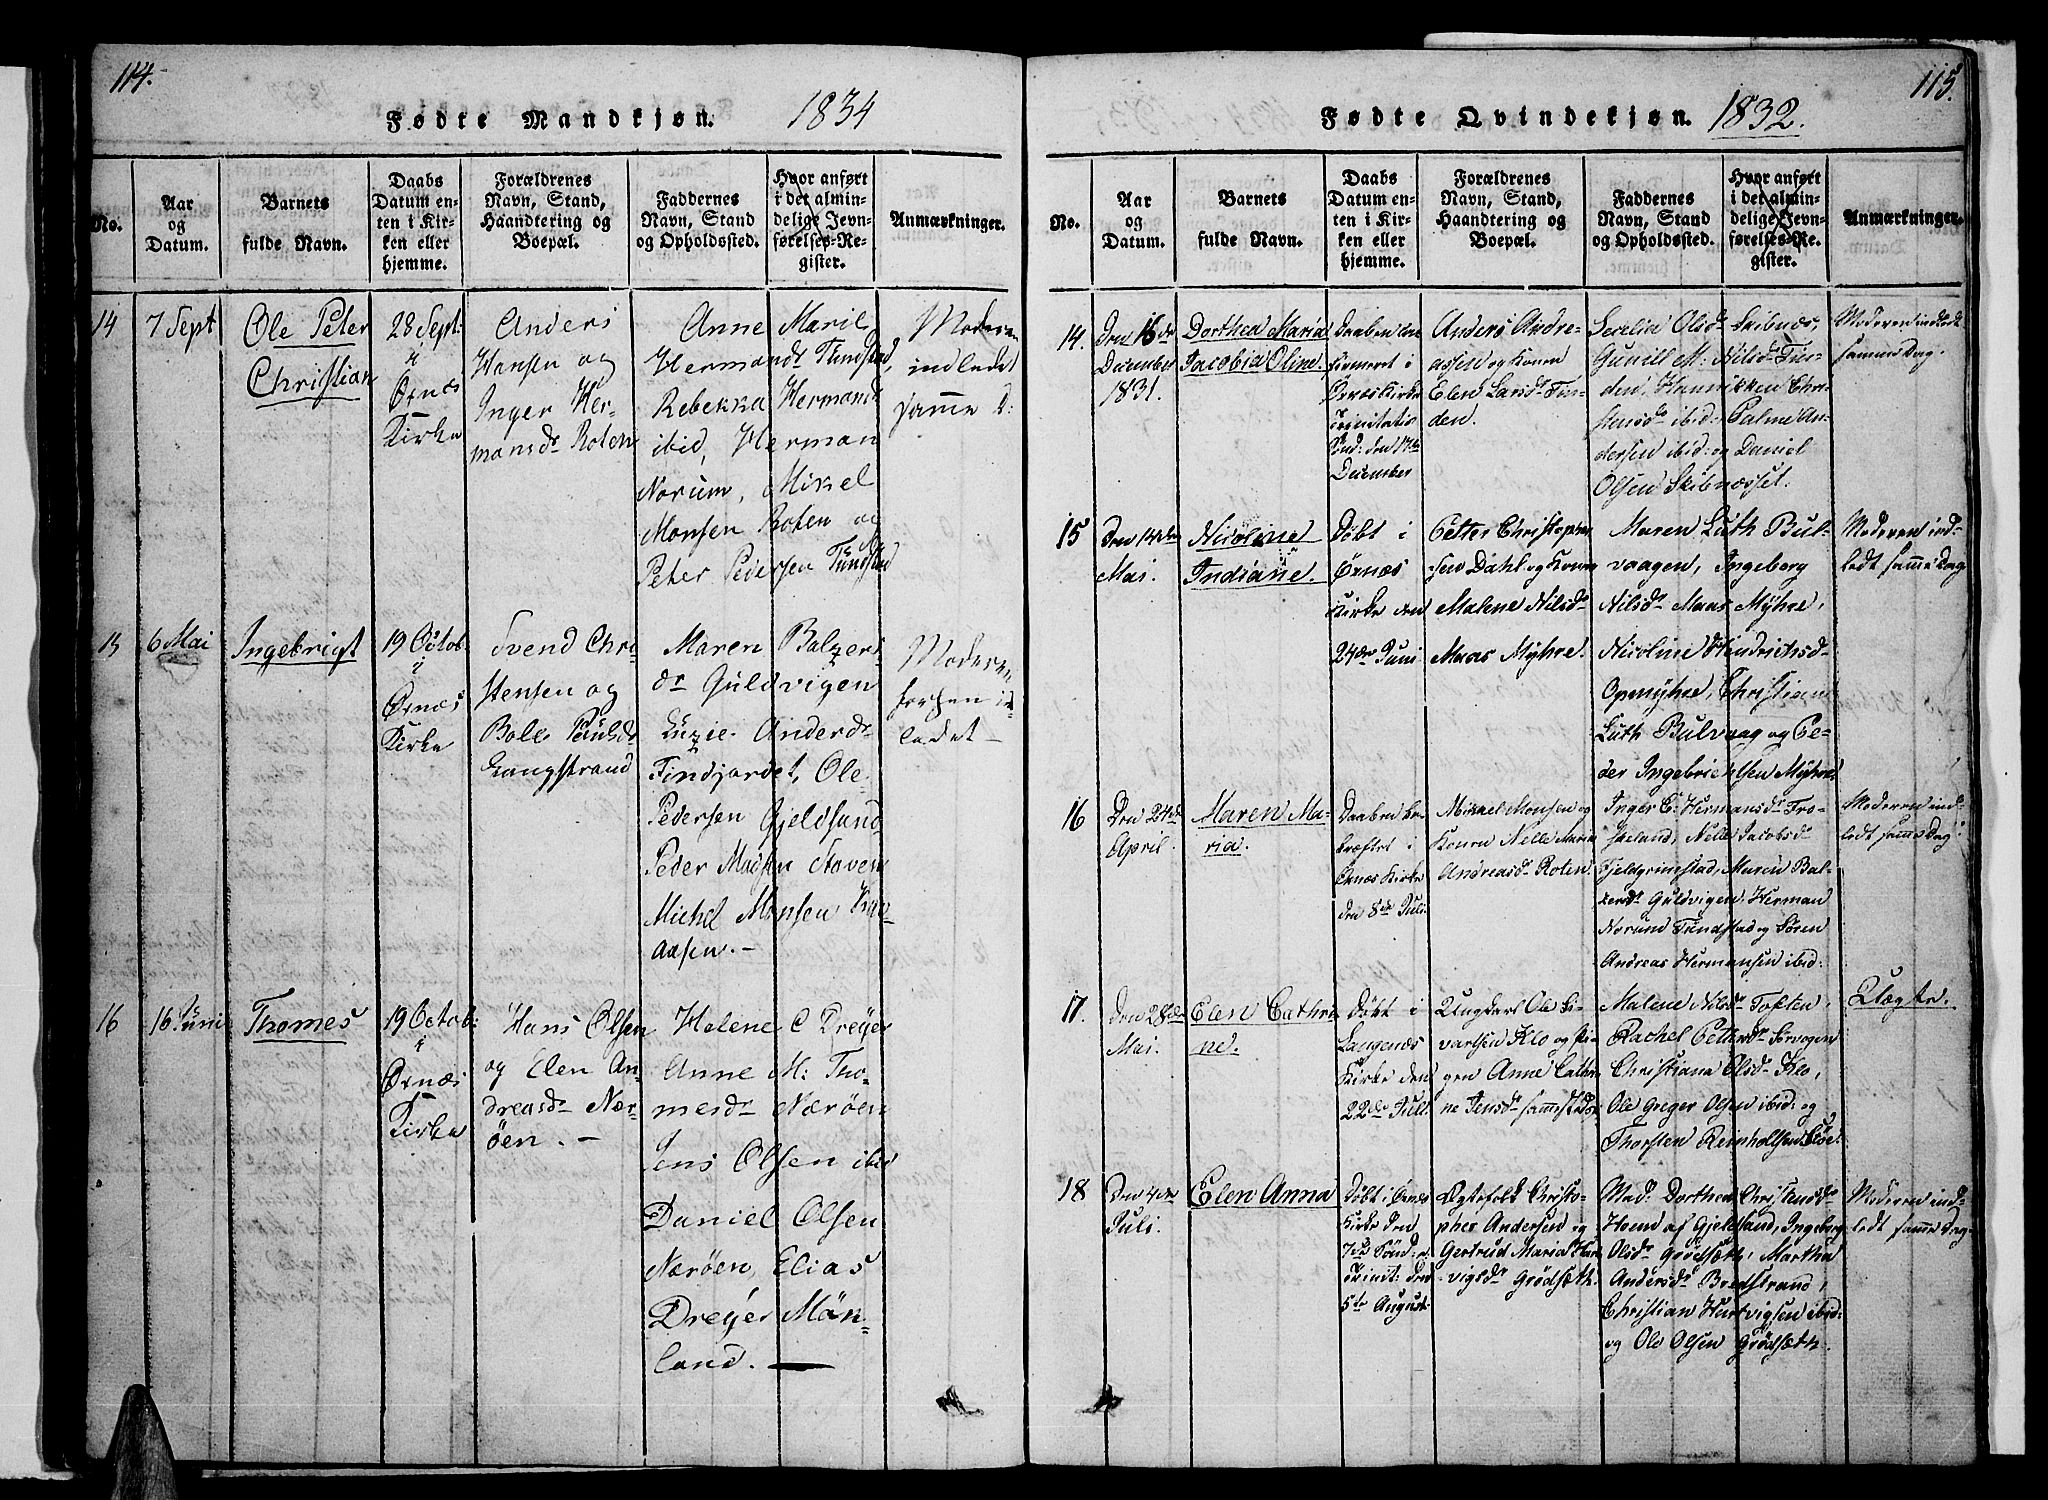 114.
Fødte Mandkjøn. 1834
No.
Aar
og
Datum.
Barnets
fulde Navn.
Daabs
Datum en-
ten i Kir-
ken eller
hjemme.
Forældrenes
Navn, Stand,
Haandtering og
Boepæl.
Faddernes
Navn, Stand
og Opholdssted.
Hvor anført
i det almin-
delige Jevn-
førelses-Re-
gister.
Anmærkninger.
14
7 Sept
Ole Peter
Christian
28 Sept:
i
Ørnes
Kirke
Anders
Hansen og
Inger Her-
mansdr Roten
Anne Maril
Hermandr Tundstad,
Rebekka Hermandr
ibid, Herman
Norum, Mikel
Monsen Roten og
Peter Pedersen Tundstad
Moderen
indledet
samme D:
15
6 Mai
Ingebrigt
19 Octob:
i
Ørnes
Kirke
Svend Chri-
stensen og
Bole Paulsdr
Langstrand
Maren Balzers
dr Guldvigen
Luzie Andersdr
Findjordet, Ole
Pedersen Gjeldsund
Peder Madsen Staven
Michel Monsen
aasen. —
Moderen
forhen in-
ledet —
16
16 Juni
Thomes
19 Octob:
i
Ørnes
Kirke
Hans Olsen
og Elen An-
dreasdr Nær-
öen. —
Helene C Dreyer
Anne M: Tho-
mesdr Næröen
Jens Olsen ibid
Daniel Olsen
Næröen, Elias
Dreyer Mön-
land. —
115.
Fødte Qvindekjøn. 1832.
No.
Aar
og
Datum.
Barnets
fulde Navn.
Daabs
Datum en-
ten i Kir-
ken eller
hjemme.
Forældrenes
Navn, Stand,
Haandtering og
Boepæl.
Faddernes
Navn, Stand
og Opholdssted.
Hvor anført
i det almin-
delige Jevn-
førelses-Re-
gister.
Anmærkninger.
14.
Den 16de
December
1831.
Dorthea Maria
Jacobia Oline.
Daaben con
firmert i
Ørnes Kirke
Trinitatis
Sönd: den 17de
December
Anders Andre-
assen og Konen
Elen Larsdr Tin-
den.
Secelia Olsdr Skibnæs,
Gunill M: Nilsdr Tin-
den, Hennikken Chri-
stensdr ibid: Palme An-
dersen ibid: og Daniel
Olsen Skibnæsset.
Moderen indledt
samme Dag.
15
Den 14de
Mai.
Nicoline
Indiane.
Döbt i
Örnæs
Kirke den
24de Juni
Petter Christopher
sen Dahl og Konen
Malene Nilsdr
Maas Myhre.
Maren Luth Bul-
vaagen, Ingeberg
Nilsdr Maas Myhre,
Nicoline Hindrichsd
Opmyhre, Christian
Luth Bulvaag og Pe-
der Ingebrichtsen Myhre
Moderen ind-
ledt samme Dag
16
Den 24de
April.
Maren Ma-
ria.
Daaben be-
kræftet i
Ørnes Kirke
den 8de Juli
Mikkel Monsen og
Konen Nelle Maria
Andreasdr Roten.
Inger C: Hermansdr Tro-
Nelle Jacobsdr
Fjeldgrimstad, Maren Bal-
zersdr Guldvigen, Herman
Norum Tundstad og Sören
Andreas Hermansen ibid:
Moderen ind-
ledt samme Dag.
17.
Den 28de
Mai.
Elen Cathri
ne.
Döbt i
Langenæs
Kirke den
22de Juli
Ungkarl Ole Si-
vartsen Klo og Pi-
gen Anne Cathri-
ne Jensdr sammested
Malene Nilsdr Toften,
Rachel Pettersdr Sorvogen
Christiana Olsdr Klo,
Ole Greger Olsen ibid: og
Thorsten Reinholtsen Klöe.
Uægte.
18
Den 4de
Juli.
Elen Anna
Döbt i Ørnes
Kirke Den
7de Sönd: e.
Trinit: Den
5te August
Ægtefolk Christo-
pher Andersen og
Gertrud Maria Har-
vigsdr Grödsæth.
Mad: Dorthea Christensdr
Hemd af Gjeldsand, Ingeborg
Olsdr Grödsæth, Martha
Andersdr Bredstrand,
Christian Hartvigsen ibid:
og Ole Olsen Grödsæth.
Moderen ind-
ledt samme Dag